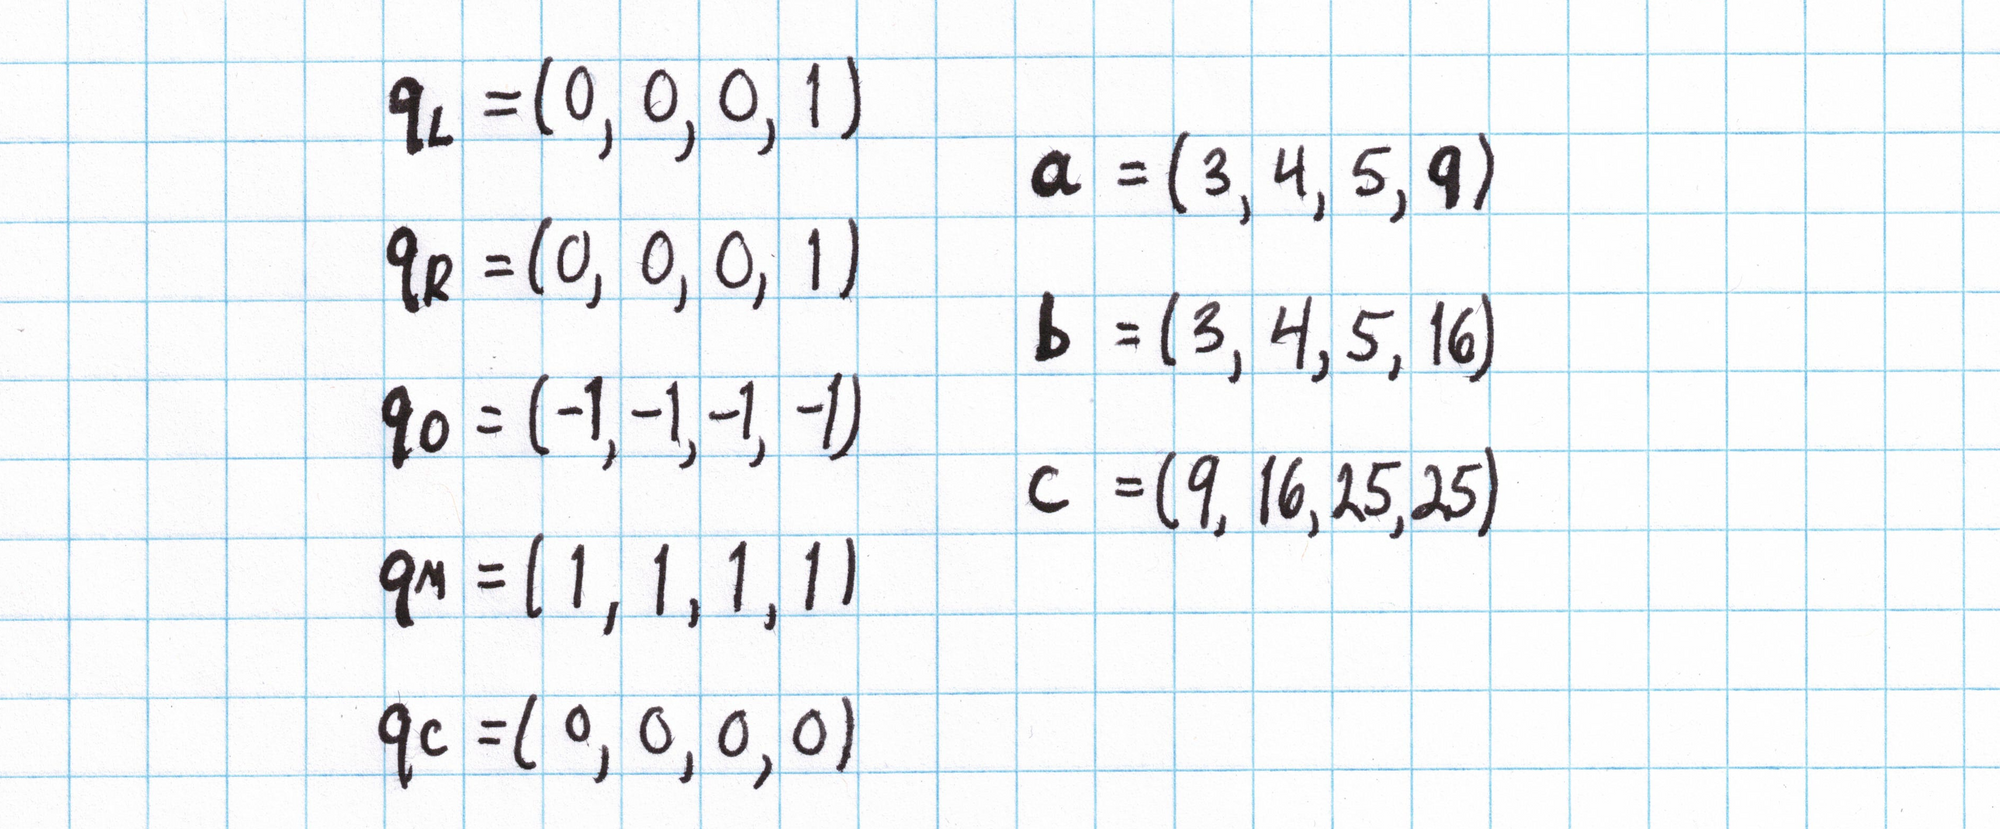 qL = (0, 0, 0, 1)
qR = (0, 0, 0, 1)
qO = (-1, -1, -1, -1)
qM = (1, 1, 1, 1)
qC = (0, 0, 0, 0)
a = (3, 4, 5, 9)
b = (3, 4, 5, 16)
c = (9, 16, 25, 25)